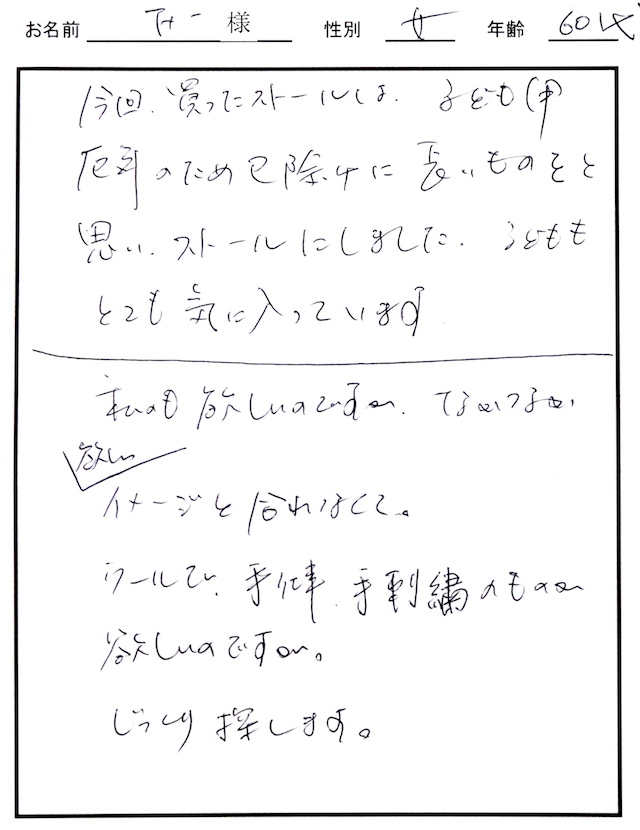 お名前 T.Y 様 性別 女 年齢 60代
今回、買ったストールは、子ども(甲
厄年のため厄除けに長いものをと
思い、ストールにしました。子どもも
とても気に入っています
私のも欲しいのですが、なかなか
欲しい
イメージと合わなくて。
ウールで、手仕事、手刺繍のものが
欲しいのですが。
じっくり探します。